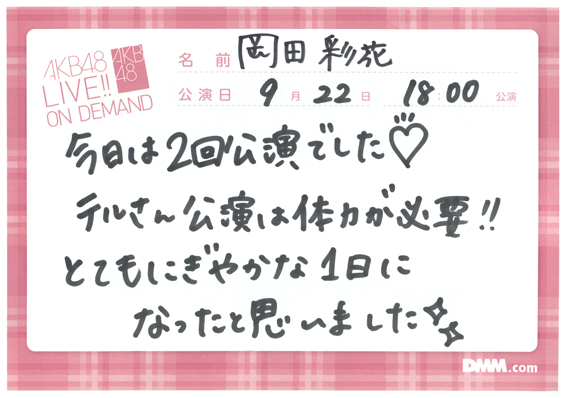 AKB48
LIVE!!
ON DEMAND
AKB
48
名前 岡田彩花
公演日 9月22日 18:00公演
今日は2回公演でした♡
テルさん公演は体力が必要!!
とてもにぎやかな1日に
なったと思いました
DMM.com